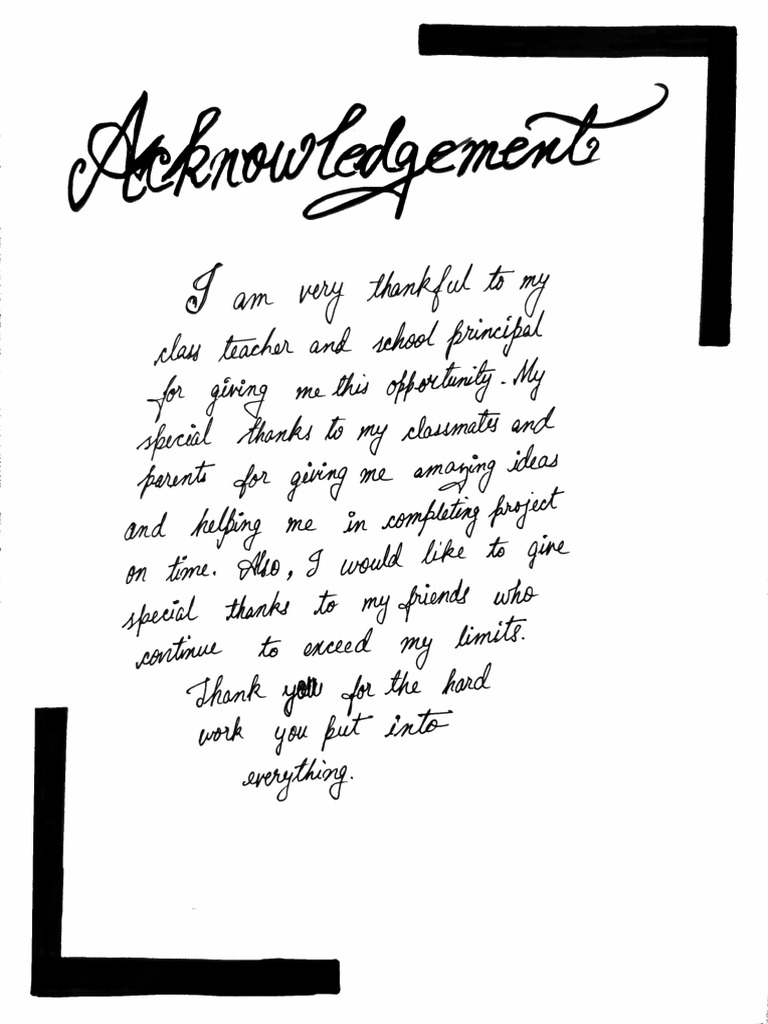 Acknowledgement
I am very thankful to my
class teacher and school principal
for giving me this opportunity. My
special thanks to my classmates and
parents for giving me amazing ideas
and helping me in completing project
on time. Also, I would like to give
special thanks to my friends who
continue to exceed my limits.
Thank you for the hard
work you put into
everything.